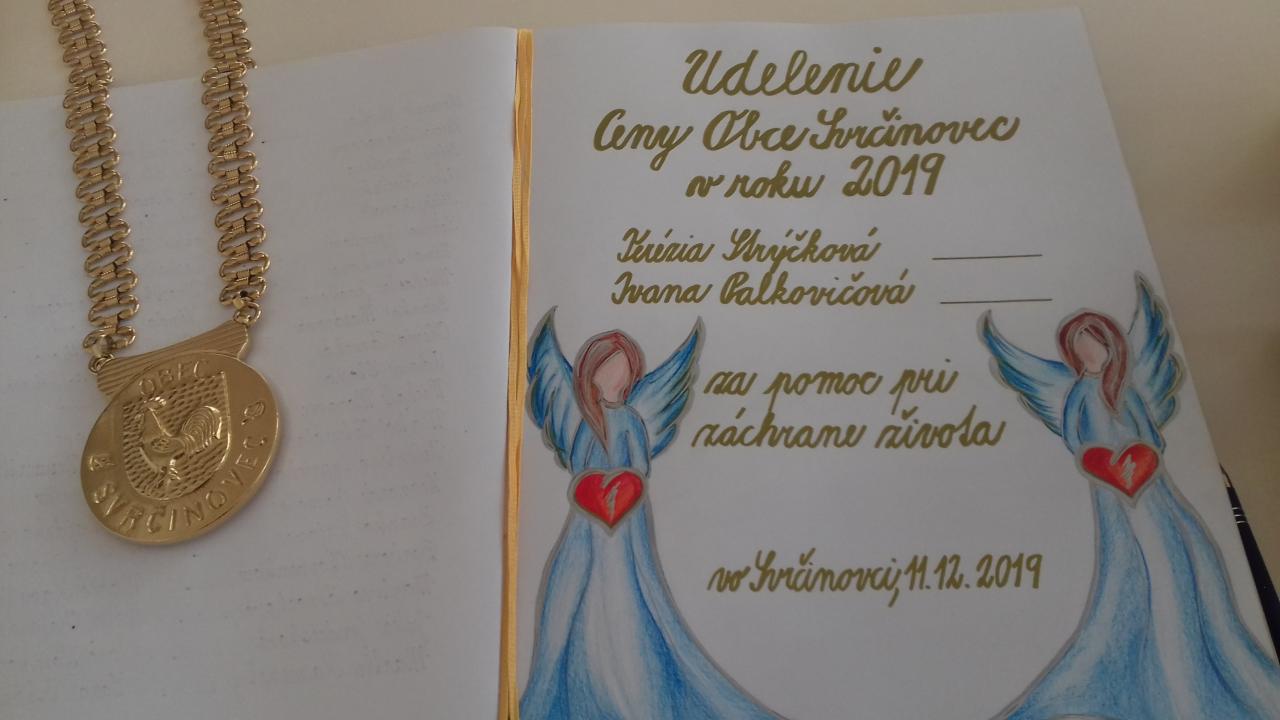 OBEC
SVRČINOVEC
Udelenie
Ceny Obce Svrčinovec
v roku 2019
Terézia Strýčková
Ivana Palkovičová
za pomoc pri
záchrane života
vo Svrčinovci, 11.12. 2019